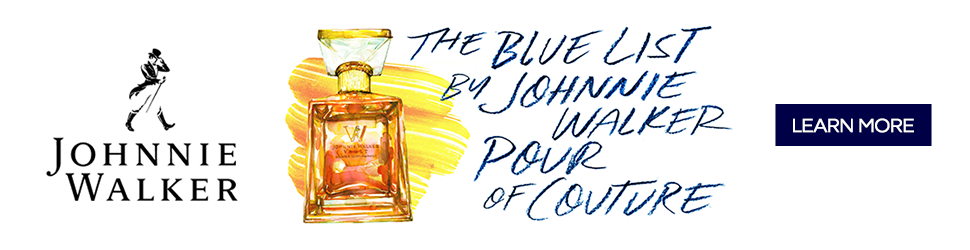 JOHNNIE
WALKER
JOHNNIE WALKER
VAULT
THE BLUE LIST
BY JOHNNIE
WALKER
POUR
OF COUTURE
LEARN MORE